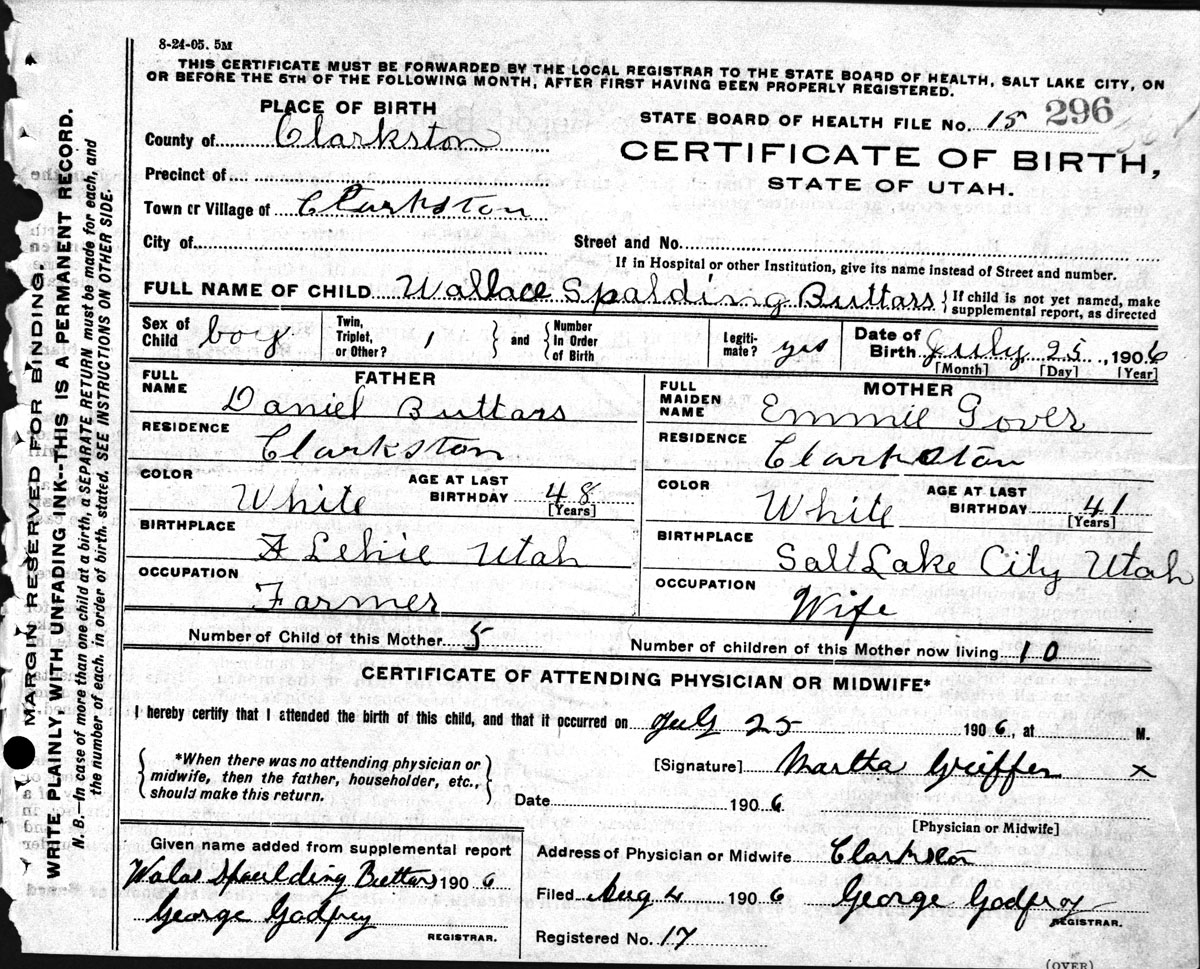 8-24-05. 5M
THIS CERTIFICATE MUST BE FORWARDED BY THE LOCAL REGISTRAR TO THE STATE BOARD OF HEALTH, SALT LAKE CITY, ON
OR BEFORE THE 5TH OF THE FOLLOWING MONTH, AFTER FIRST HAVING BEEN PROPERLY REGISTERED.
PLACE OF BIRTH
STATE BOARD OF HEALTH FILE No. 15 296
County of Clarkston
CERTIFICATE OF BIRTH,
STATE OF UTAH.
Precinct of
Town or Village of Clarkston
City of
Street and No.
If in Hospital or other Institution, give its name instead of Street and number.
FULL NAME OF CHILD Wallace Spalding Buttars { If child is not yet named, make
supplemental report, as directed
Sex of Child boy Twin, Triplet, or Other? 1 } and { Number In Order of Birth Legiti-mate? yes Date of Birth July 25, 1906
[Month] [Day] [Year]
FATHER
FULL NAME Daniel Buttars
RESIDENCE Clarkston
COLOR White AGE AT LAST BIRTHDAY 48 [Years]
BIRTHPLACE A Lehie Utah
OCCUPATION Farmer
MOTHER
FULL MAIDEN NAME Emmie Gover
RESIDENCE Clarkston
COLOR White AGE AT LAST BIRTHDAY 41 [Years]
BIRTHPLACE Salt Lake City Utah
OCCUPATION Wife
Number of Child of this Mother 5 Number of children of this Mother now living 10
CERTIFICATE OF ATTENDING PHYSICIAN OR MIDWIFE*
I hereby certify that I attended the birth of this child, and that it occurred on July 25 1906, at M.
*When there was no attending physician or
midwife, then the father, householder, etc.,
should make this return.
[Signature] Martha Griffen x
Date 1906
[Physician or Midwife]
Given name added from supplemental report
Walas Spaulding Buttars 1906
George Godfrey
REGISTRAR.
Address of Physician or Midwife Clarkston
Filed Aug 4 1906 George Godfrey
REGISTRAR.
Registered No. 17
(OVER)
MARGIN RESERVED FOR BINDING.
WRITE PLAINLY, WITH UNFADING INK--THIS IS A PERMANENT RECORD.
N. B.—In case of more than one child at a birth, a SEPARATE RETURN must be made for each, and
the number of each, in order of birth, stated. SEE INSTRUCTIONS ON OTHER SIDE.